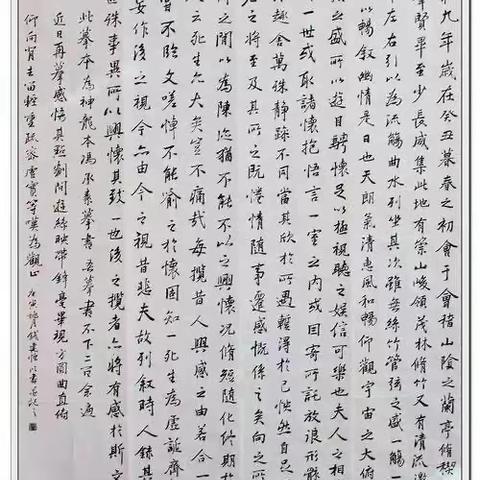 九年歲在癸丑暮春之初會于會稽山陰之蘭亭脩禊
羣賢畢至少長咸集此地有崇山峻領茂林脩竹又有清流激
左右引以為流觴曲水列坐其次雖無絲竹管弦之盛一觴一
以暢敘幽情是日也天朗氣清惠風和暢仰觀宇宙之大俯
之盛所以遊目騁懷足以極視聽之娛信可樂也夫人之相
一世或取諸懷抱悟言一室之內或因寄所託放浪形骸
趣舍萬殊靜躁不同當其欣於所遇暫得於己怏然自足
老之將至及其所之既惓情隨事遷感慨係之矣向之所
仰之閒以為陳迹猶不能不以之興懷況脩短隨化終期於
云死生亦大矣豈不痛哉每攬昔人興感之由若合一
嘗不臨文嗟悼不能喻之於懷固知一死生為虛誕齊
妄作後之視今亦由今之視昔悲夫故列敘時人錄其
世殊事異所以興懷其致一也後之攬者亦將有感於斯文
此摹本為神龍本馮承素摹書吾摹書不下二百余通
近日再摹感悟其點劃間遊絲映帶鋒毫畢視方圓曲直俯
仰向背去留輕重疏密虛實等嘆為觀止